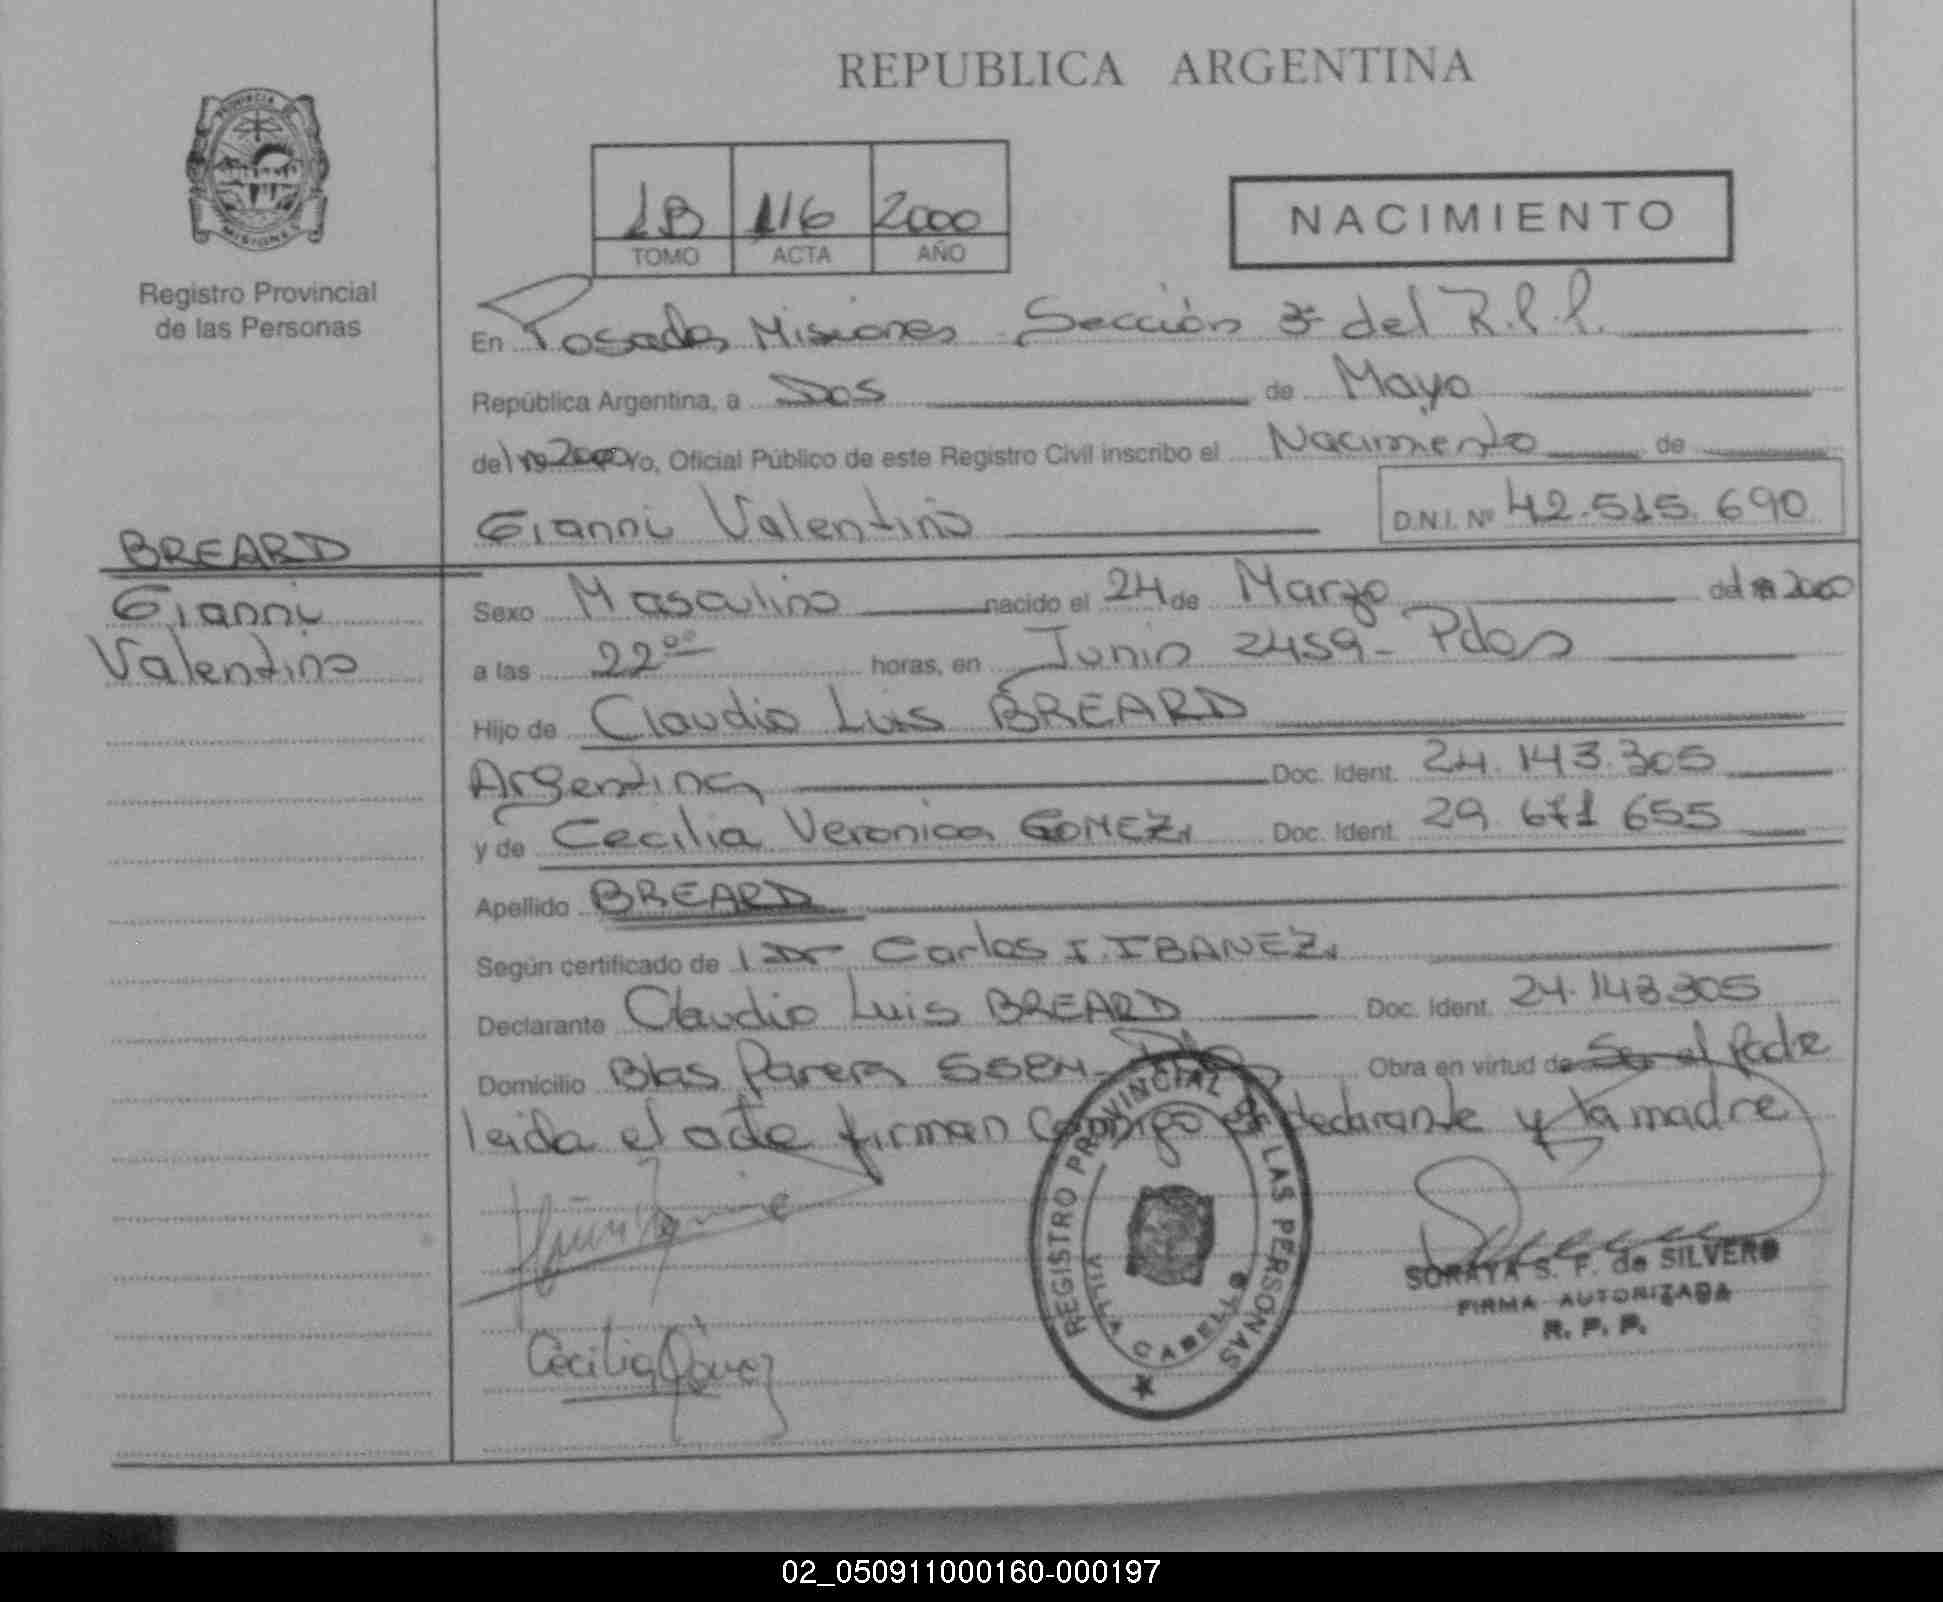 REPUBLICA ARGENTINA
PROVINCIA
MISIONES
Registro Provincial
de las Personas
1B 116 2000
TOMO ACTA AÑO
NACIMIENTO
En Posadas Misiones Sección 3ª del R.P.P.
República Argentina, a Dos de Mayo
del 2000 Yo, Oficial Público de este Registro Civil inscribo el Nacimiento de
Gianni Valentino D.N.I. Nº 42.515.690
BREARD
Gianni
Valentino
Sexo Masculino nacido el 24 de Marzo del 2000
a las 22⁰⁰ horas, en Junin 2459 - Pdas
Hijo de Claudio Luis BREARD
Argentina Doc. Ident. 24.143.305
y de Cecilia Veronica GOMEZ. Doc. Ident. 29 671 655
Apellido BREARD
Según certificado de Dr Carlos I. IBAÑEZ.
Declarante Claudio Luis BREARD Doc. Ident. 24.143.305
Domicilio Blas Parera Obra en virtud de Ser el Padre
leida el acta firman conmigo el declarante y la madre
Cecilia Gómez
REGISTRO PROVINCIAL DE LAS PERSONAS
VILLA CABELLO
SORAYA S. F. de SILVERO
FIRMA AUTORIZADA
R. P. P.
02_050911000160-000197